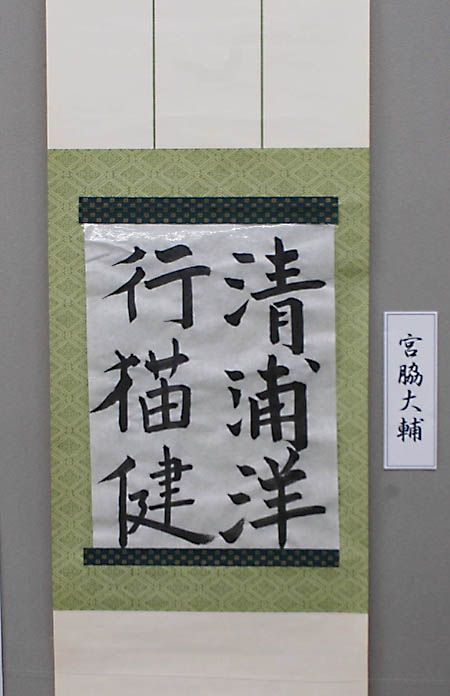 清浦洋
行猫健
宮脇大輔